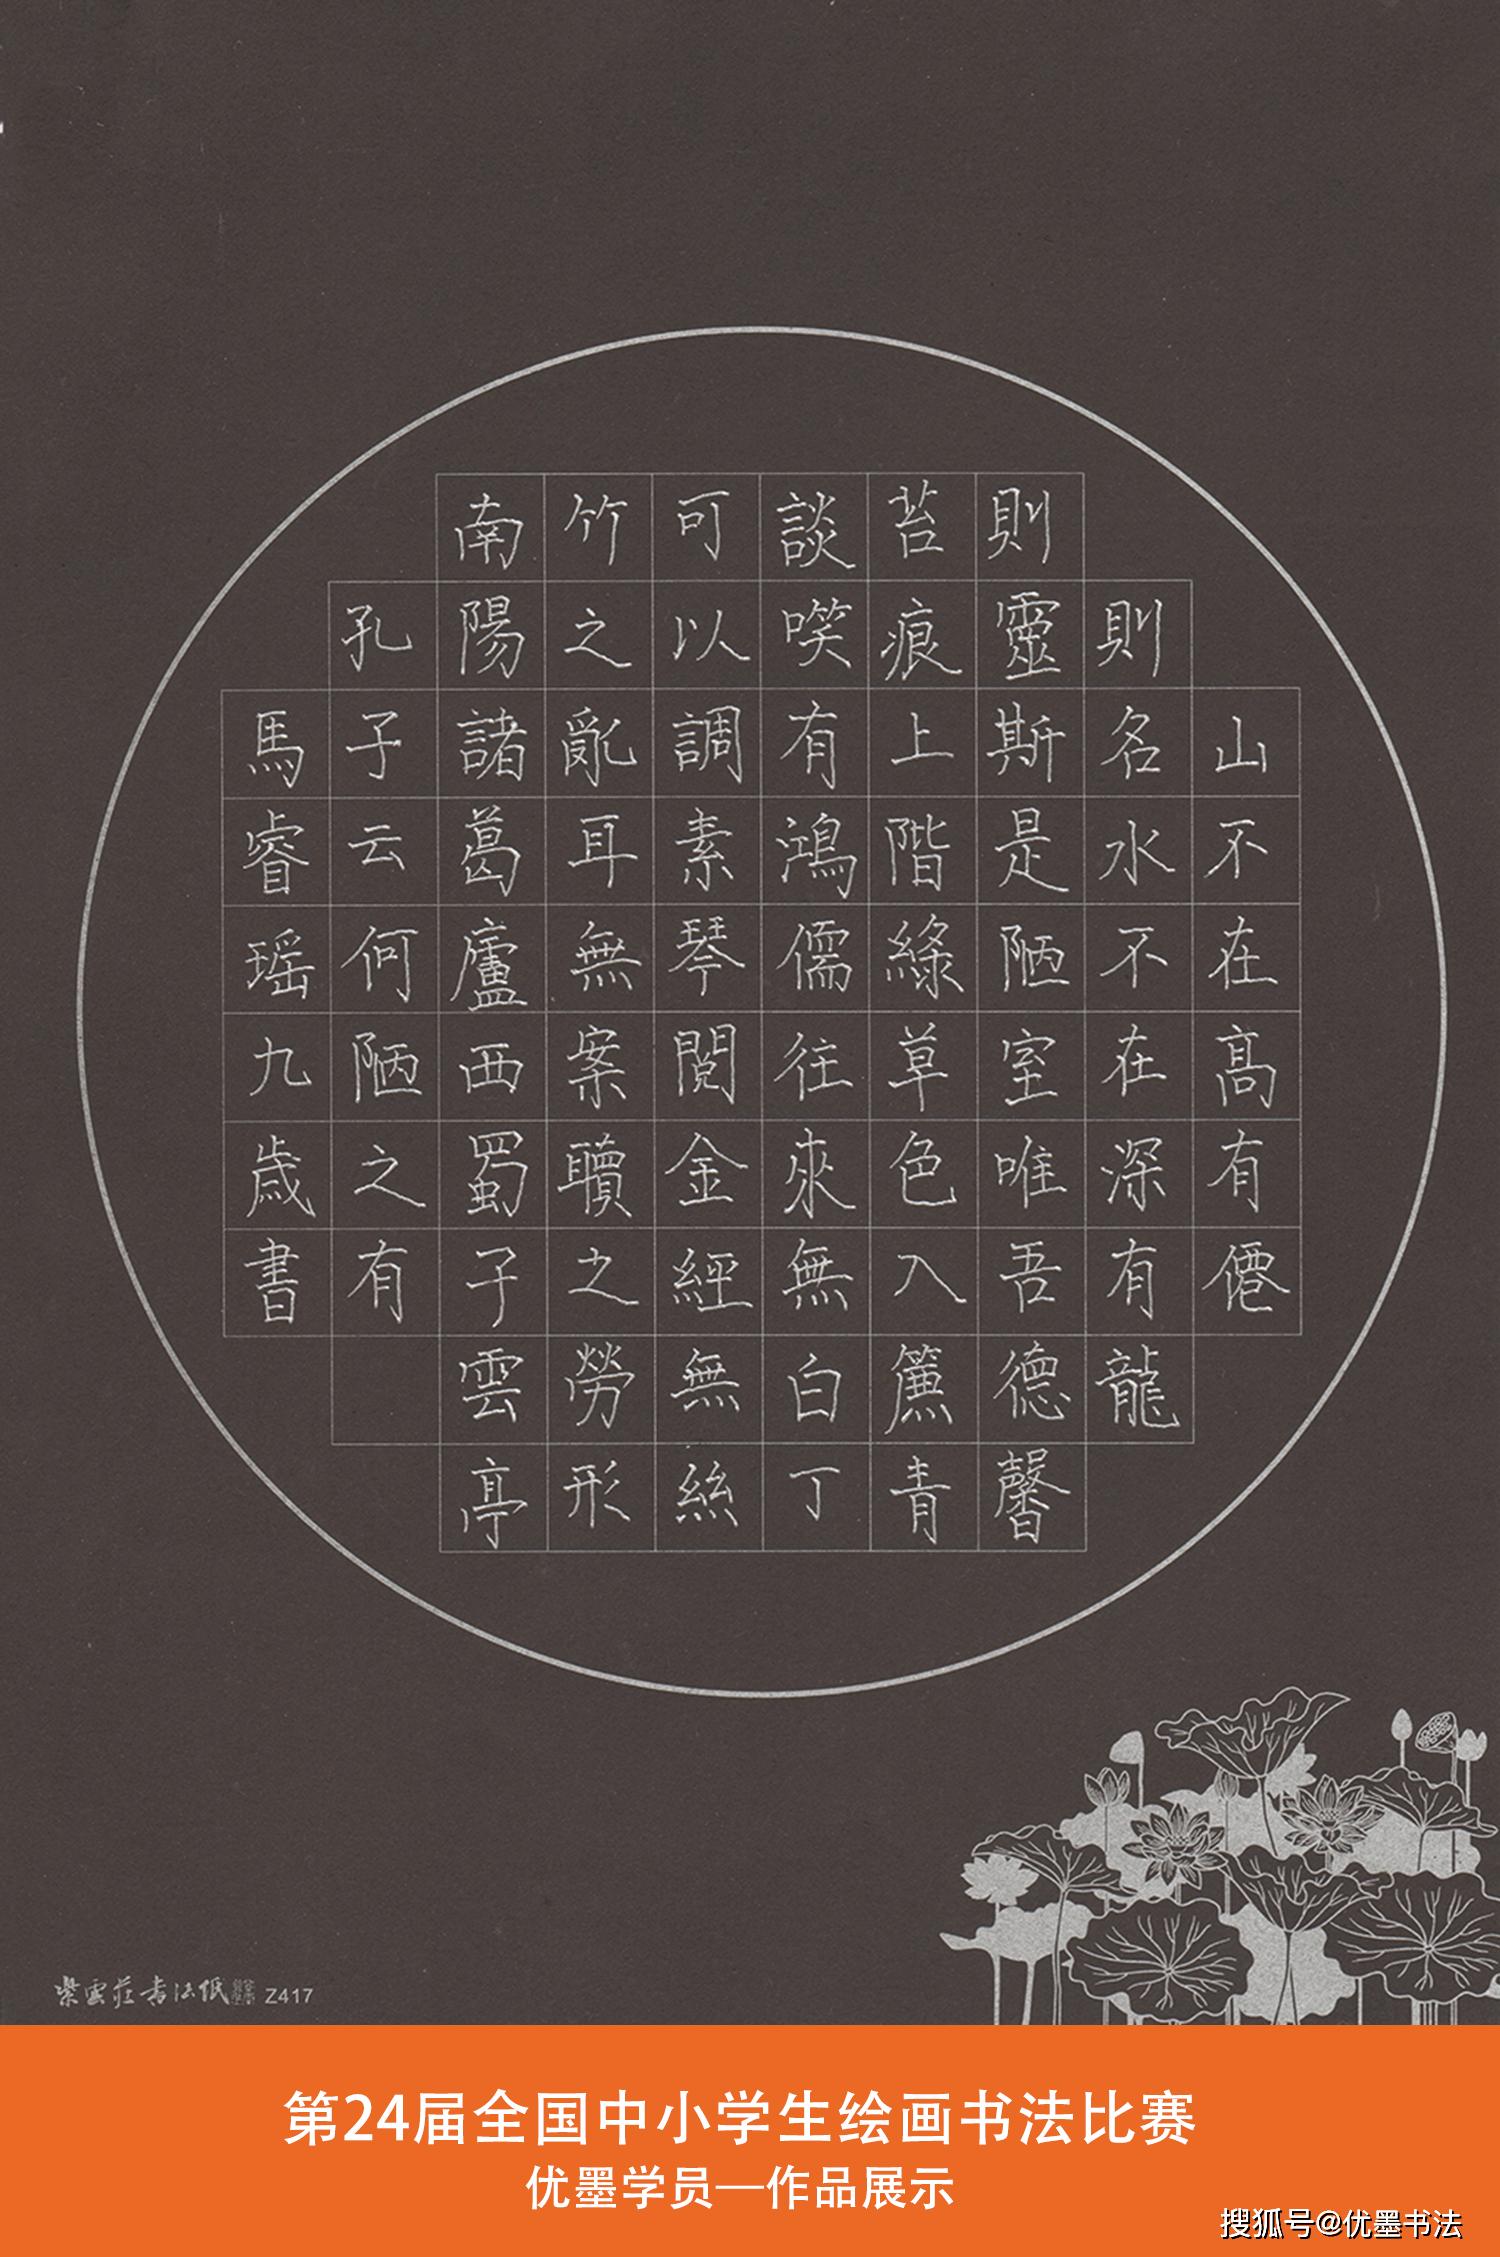 山不在高有僊
則名水不在深有龍
則靈斯是陋室唯吾德馨
苔痕上階綠草色入簾青
談笑有鴻儒往來無白丁
可以調素琴閱金經無絲
竹之亂耳無案牘之勞形
南陽諸葛廬西蜀子雲亭
孔子云何陋之有
馬睿瑶九歲書
紫雲莊書法紙 Z417
第24届全国中小学生绘画书法比赛
优墨学员—作品展示
搜狐号@优墨书法